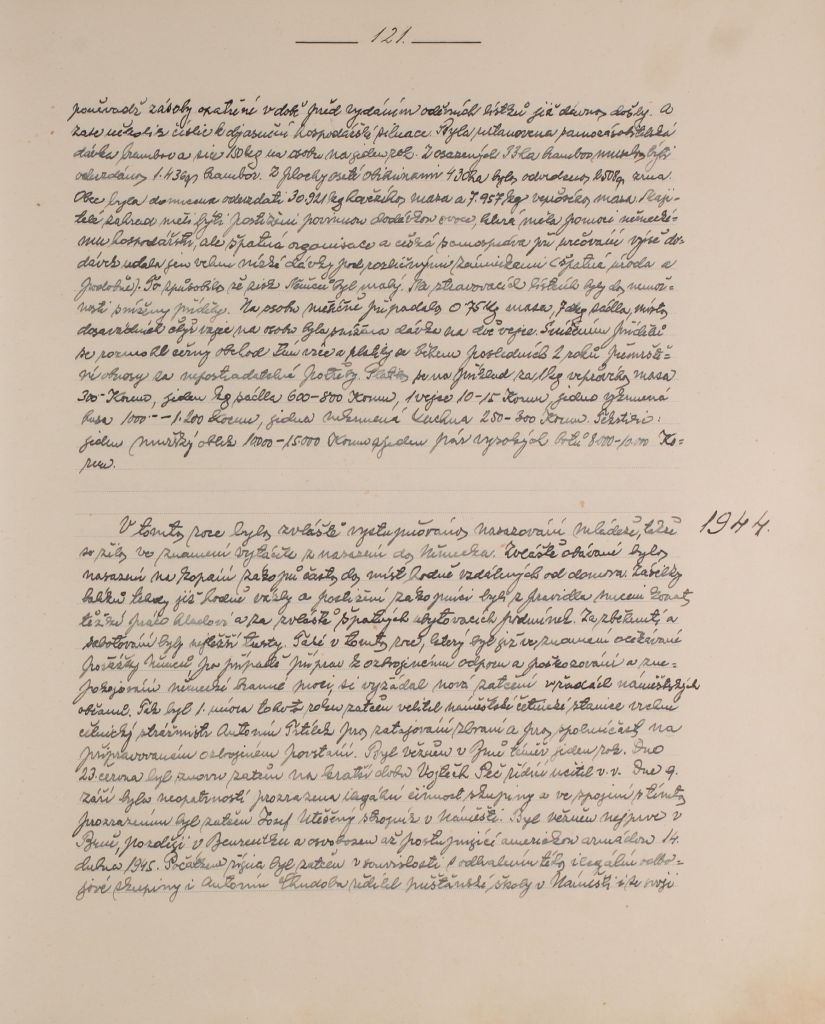 121.
poněvadž zásoby opatřené v době před vydáním oděvních lístků již dávno došly. A
zase několik číslic k objasnění hospodářské situace. Byla stanovena samozásobitelská
dávka brambor a sice 150 kg na osobu na jeden rok. Z osazených ha brambor muselo býti
odevzdáno brambor. Z plochy oseté obilninami 430 ha bylo odvedeno zrna.
Obec byla donucena odevzdati 30.921 kg hovězího masa a 7.957 kg vepřového masa. Maji-
telé zahrad měli býti postiženi povinnou dodávkou ovoce, která měla pomoci německé-
mu hospodářství, ale špatná organisace a česká samospráva při určování výše do-
dávek udala jen velmi nízké dávky pod rozličnými záminkami (špatná úroda a
podobně). To způsobilo že zisk Němců byl malý. Na stravovacích lístcích byly do nemož-
nosti sníženy příděly. Na osobu měsíčně připadalo 0.75 kg masa, 7 dkg sádla, místo
dosavadních vajec na osobu byla snížena dávka na dvě vejce. Snížením přídělů
se rozmohl černý obchod tím více a platily se během posledních 2 roků přemrště-
né obnosy za nepostradatelné potřeby. Platilo se na příklad za 1 kg vepřového masa
300 Korun, jeden kg sádla 600-800 Korun, 1 vejce 10-15 Korun, jedna krmená
husa 1000.- - 1.200 Korun, jedna nekrmená kachna 250-300 Korun. Textilie:
jeden mužský oblek 10000-15000 Korun a jeden pár vysokých botů 8.000-10.000 Ko-
run.
1944.
V tomto roce bylo zvláště vystupňováno nasazování mládeže, též
se žilo ve znamení výtáček z nasazení do Německa. Zvláště obávané bylo
nasazení na kopání zákopů často do míst hodně vzdálených od domova. Zásilky
balíků tehdy již hodně vázly a postižení zákopníci byli z pravidla nuceni konat
těžkou práci hladoví a za zvláště špatných ubytovacích podmínek. Za zběhnutí a
sabotování byly nejtěžší tresty. Také v tomto roce, který byl již ve znamení očekávané
porážky Němců pro případ příprav k ozbrojenému odporu a poškozování a zne-
pokojování německé branné moci si vyžádal nová zatčení v řadách náměšťských
občanů. Tak byl 1. února tohoto roku zatčen velitel náměšťské četnické stanice vrchní
četnický strážmistr Antonín pro zatajování zbraní a pro spoluúčast na
připravovaném ozbrojeném povstání. Byl vězněn v Brně téměř jeden rok. Dne
23. června byl znovu zatčen na kratší dobu Vojtěch Peč řídící učitel v. v. Dne 9.
září byla neopatrností prozrazena ilegální činnost skupiny a ve spojení s tímto
prozrazením byl zatčen Josef Utěšený strojník v Náměšti. Byl vězněn nejprve v
Brně, později v a osvobozen až postupující americkou armádou 14.
dubna 1945. Počátkem října byl zatčen v souvislosti s odhalením této ilegální odbo-
jové skupiny i Antonín Chudoba ředitel měšťanské školy v Náměšti i se svojí